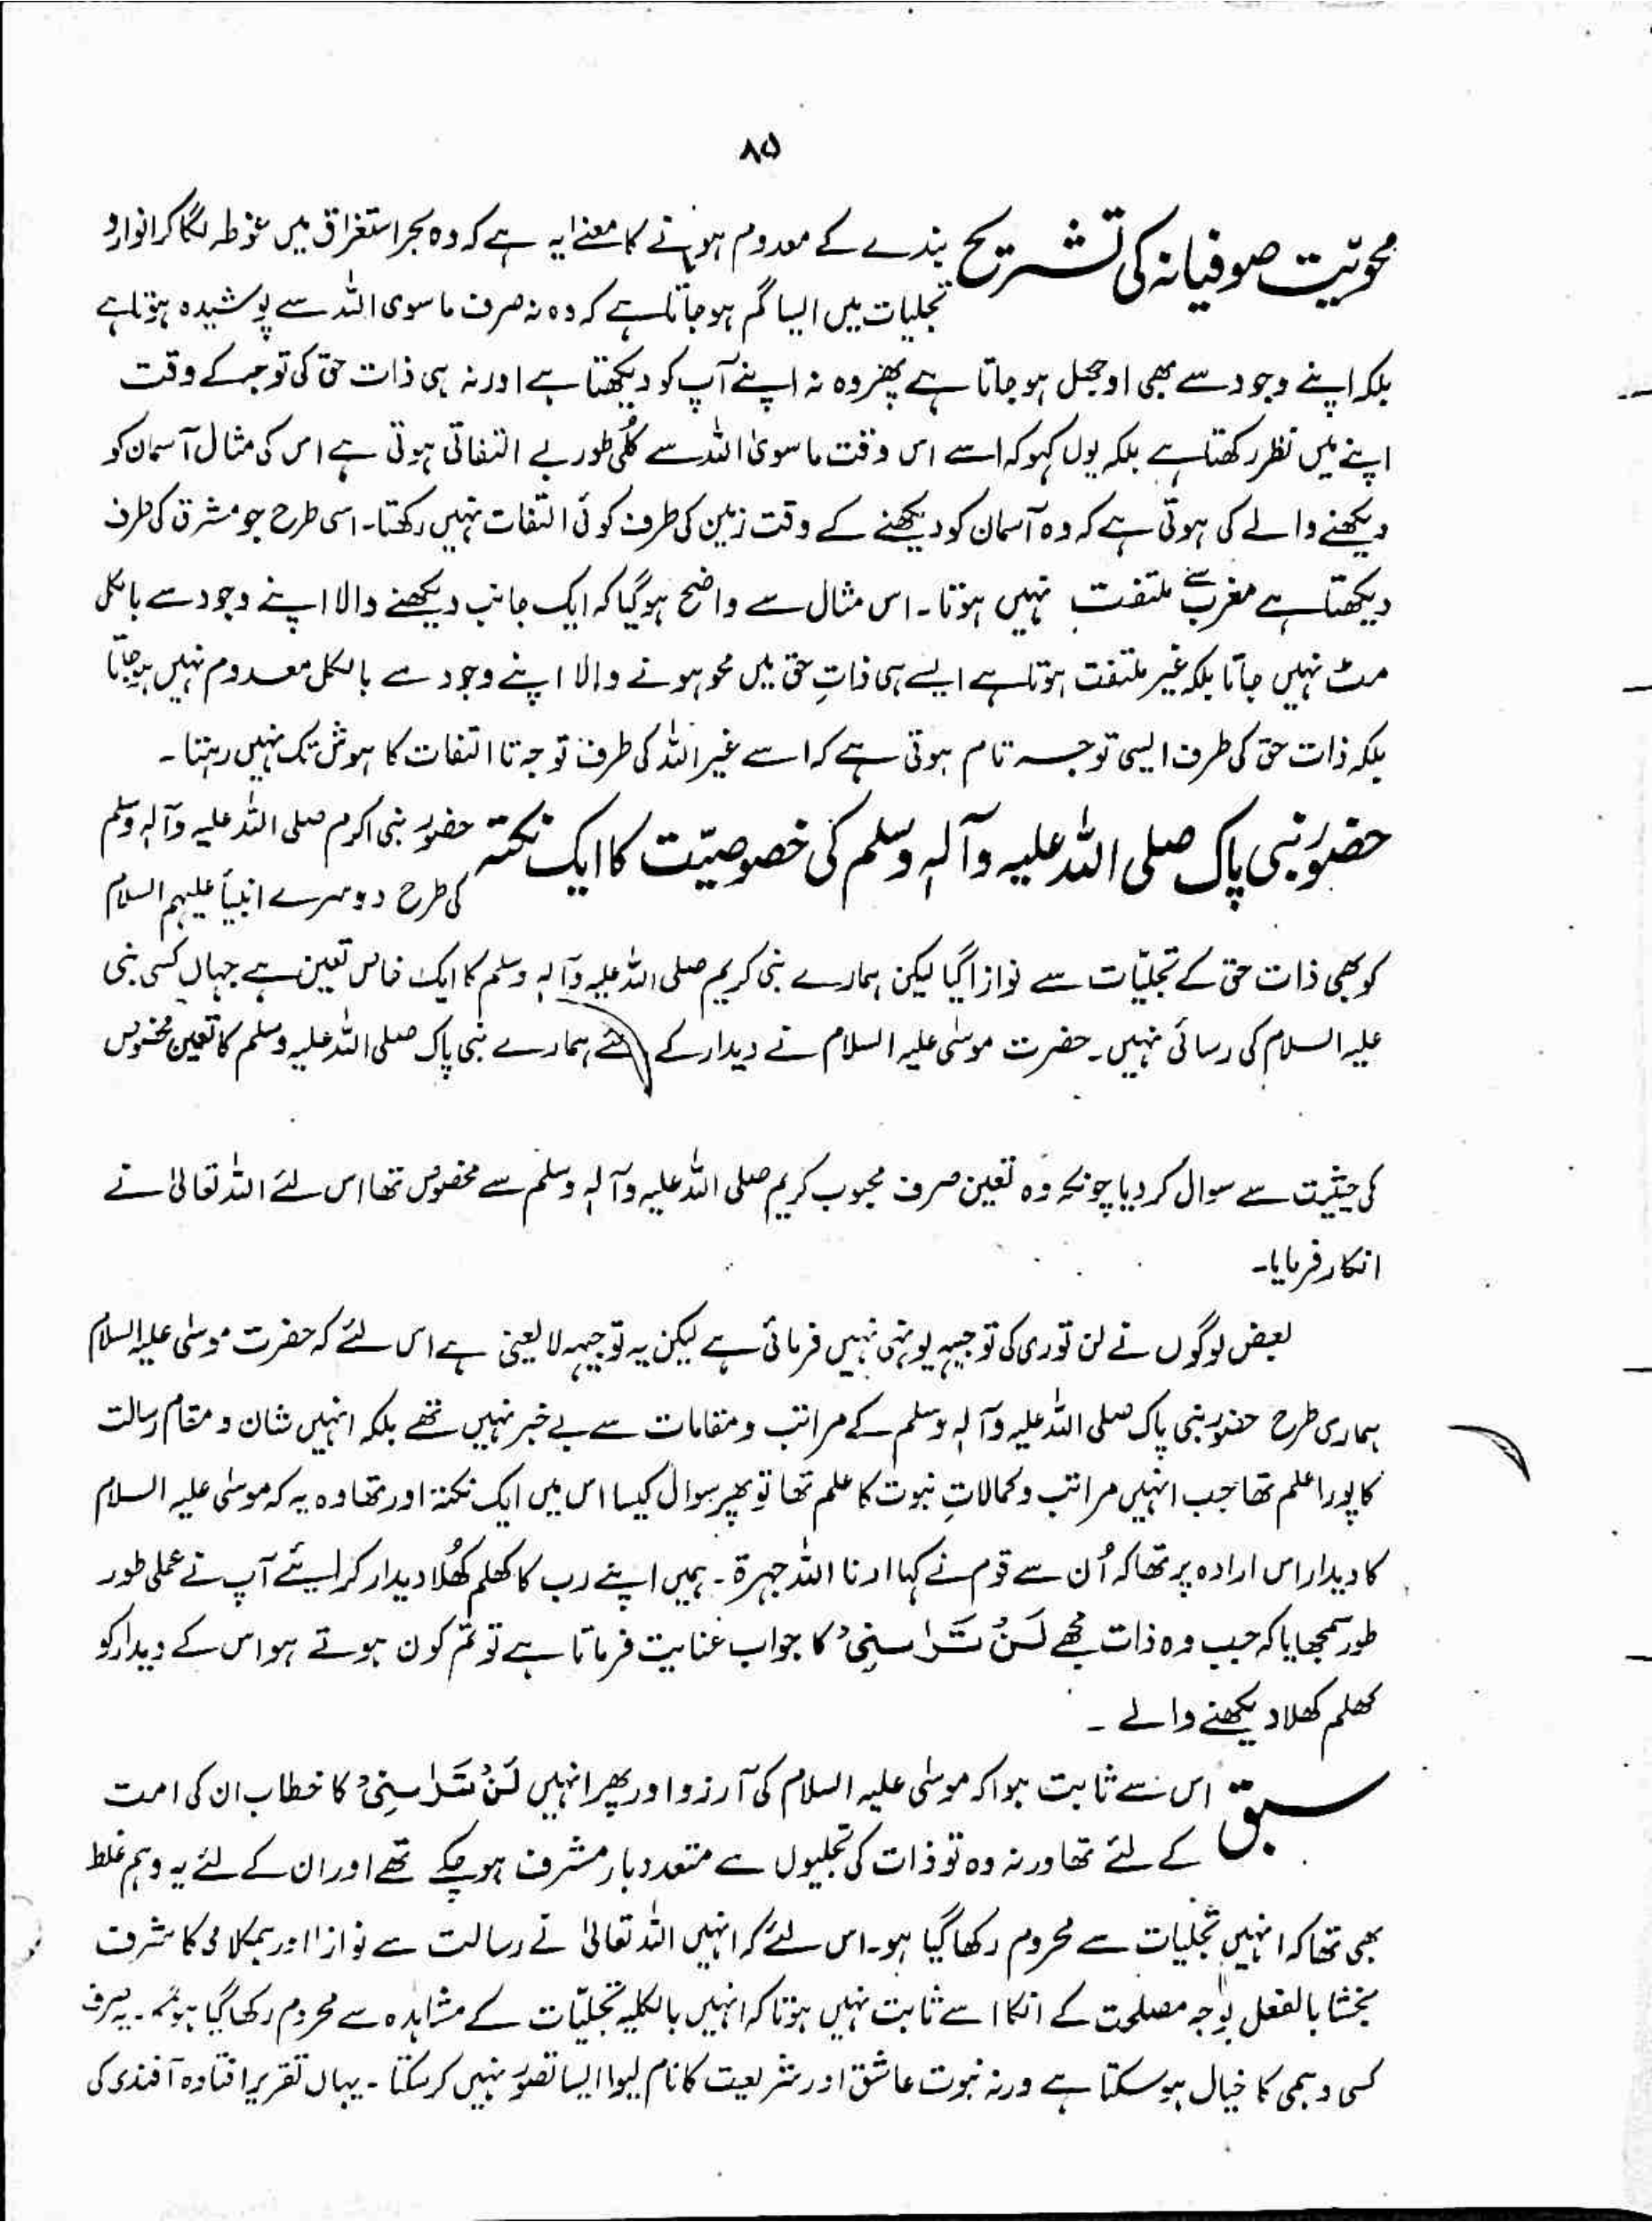 ۸۵
محویّت صوفیانہ کی تشریح بندے کے معدوم ہونے کا معنےٰ یہ ہے کہ وہ بحر استغراق میں غوطہ لگا کر انوار و
تجلیات میں ایسا گم ہو جاتا ہے کہ وہ نہ صرف ماسوی اللہ سے پوشیدہ ہوتا ہے
بلکہ اپنے وجود سے بھی اوجھل ہو جاتا ہے پھر وہ نہ اپنے آپ کو دیکھتا ہے اور نہ ہی ذات حق کی توجہ کے وقت
اپنے میں نظر رکھتا ہے بلکہ یوں کہو کہ اسے اس وقت ماسویٰ اللہ سے کُلّی طور بے التفاتی ہوتی ہے اس کی مثال آسمان کو
دیکھنے والے کی ہوتی ہے کہ وہ آسمان کو دیکھنے کے وقت زمین کی طرف کوئی التفات نہیں رکھتا۔ اسی طرح جو مشرق کی طرف
دیکھتا ہے مغرب سے ملتفت نہیں ہوتا۔ اس مثال سے واضح ہو گیا کہ ایک جانب دیکھنے والا اپنے وجود سے بالکل
مٹ نہیں جاتا بلکہ غیر ملتفت ہوتا ہے ایسے ہی ذاتِ حق میں محو ہونے والا اپنے وجود سے بالکل معدوم نہیں ہو جاتا
بلکہ ذات حق کی طرف ایسی توجہ تام ہوتی ہے کہ اسے غیر اللہ کی طرف توجہ تا التفات کا ہوش تک نہیں رہتا۔
حضور نبی پاک صلی اللہ علیہ وآلہٖ وسلم کی خصوصیّت کا ایک نکتہ حضور نبی اکرم صلی اللہ علیہ وآلہٖ وسلم
کی طرح دوسرے انبیأ علیہم السلام
کو بھی ذات حق کے تجلیّات سے نوازا گیا لیکن ہمارے نبی کریم صلی اللہ علیہ وآلہٖ وسلم کا ایک خاص تعین ہے جہاں کسی نبی
علیہ السلام کی رسائی نہیں۔ حضرت موسٰی علیہ السلام نے دیدار کے لئے ہمارے نبی پاک صلی اللہ علیہ وسلم کا تعین مخصوص
کی حیثیت سے سوال کر دیا چونکہ وہ تعین صرف محبوب کریم صلی اللہ علیہ وآلہٖ وسلم سے مخصوص تھا اس لئے اللہ تعالیٰ نے
انکار فرمایا۔
بعض لوگوں نے لن توری کی توجیہہ یونہی نہیں فرمائی ہے لیکن یہ توجیہہ لا یعنی ہے اس لئے کہ حضرت موسٰی علیہ السلام
ہماری طرح حضور نبی پاک صلی اللہ علیہ وآلہٖ وسلم کے مراتب و مقامات سے بے خبر نہیں تھے بلکہ انہیں شان و مقام رسالت
کا پورا علم تھا جب انہیں مراتب و کمالاتِ نبوت کا علم تھا تو پھر سوال کیسا اس میں ایک نکتہ اور تھا وہ یہ کہ موسٰی علیہ السلام
کا دیدار اس ارادہ پر تھا کہ اُن سے قوم نے کہا ارنا اللہ جہرۃ۔ ہمیں اپنے رب کا کھلم کھُلا دیدار کرائیے آپ نے عملی طور
طور سمجھایا کہ جب وہ ذات مجھے لَنْ تَرَانِیْ کا جواب عنایت فرماتا ہے تو تم کون ہوتے ہو اس کے دیدار کو
کھلم کھلا دیکھنے والے ۔
سبق اس سے ثابت ہوا کہ موسٰی علیہ السلام کی آرزو اور پھر انہیں لَنْ تَرَانِیْ کا خطاب ان کی امت
کے لئے تھا ورنہ وہ تو ذات کی تجلیوں سے متعدد بار مشرف ہو چکے تھے اور ان کے لئے یہ وہم غلط
بھی تھا کہ انہیں تجلیات سے محروم رکھا گیا ہو۔ اس لئے کہ انہیں اللہ تعالیٰ نے رسالت سے نوازا اور ہمکلامی کا شرف
بخشا بالفعل بوجہ مصلحت کے انکا اسے ثابت نہیں ہوتا کہ انہیں بالکلیہ تجلیّات کے مشاہدہ سے محروم رکھا گیا ہو۔ یہ صرف
کسی وہمی کا خیال ہو سکتا ہے ورنہ نبوت عاشق اور شریعت کا نام لیوا ایسا تصوّر نہیں کر سکتا۔ یہاں تقریر افتادہ آفندی کی